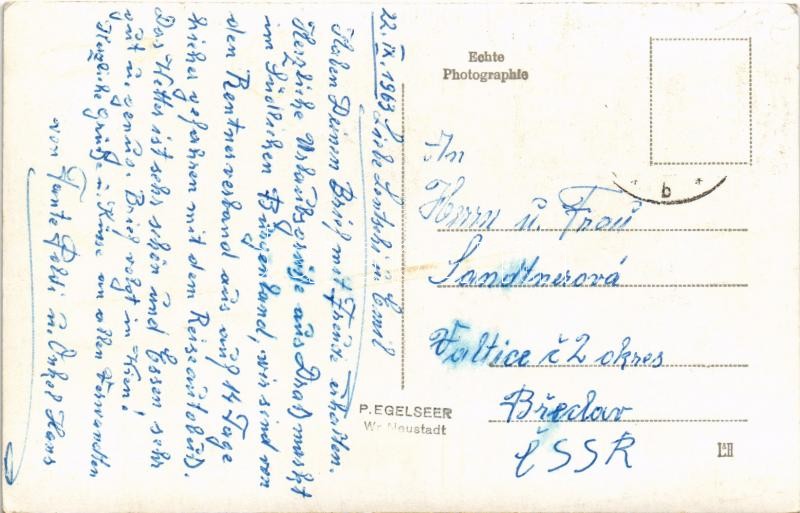 22.IX.1963 Liebe Lentschi u Emil
Haben Deinen Brief mit Freude erhalten.
Herzliche Urlaubsgrüße aus Draßmarkt
im südlichen Burgenland, wir sind von
den Rentnerverband aus auf 14 Tage
hieher gefahren mit dem Reiseautobus.
Das Wetter ist sehr schön und Essen sehr
gut u. genug. Brief folgt in Wien!
Herzliche Grüße u. Küsse an allen Verwandten
von Tante Poldi u. Onkel Hans
Echte
Photographie
* b *
An
Herrn u. Frau
Sandtnerová
Valtice č 2 okres
Břeclav
ČSSR
P. EGELSEER
Wr. Neustadt